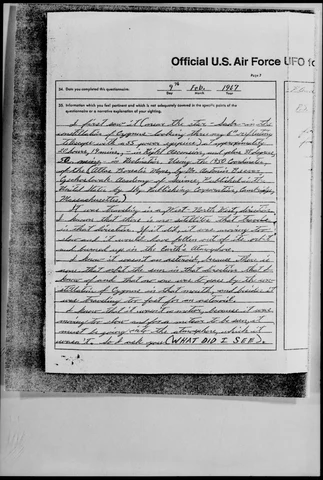 Official U.S. Air Force UFO fo
Page 7
34. Date you completed this questionnaire:
9th Feb. 1967
Day Month Year
35. Information which you feel pertinent and which is not adequately covered in the specific points of the questionnaire or a narrative explanation of your sighting.
I first saw it near the star - Sadr - in the
constellation of Cygnus - looking through my 6" reflecting
telescope with a 55 power eyepiece, at approximately
20 hours, 19 minutes - in Right Ascension, and plus 40 degrees,
50, in Declination. Using the 1950 Coordinates,
of the (Atlas Borealis Maps, by Dr. Antonin Becvar,
Czechoslovak Academy of Science, Published in the
United States by Sky Publishing Corporation, Cambridge,
Massachusetts.)
It was traveling in a West North West, direction
I know that there is no satellite that travels
in that direction. If it did, it was moving too
slow and it would have fallen out of its orbit
and burned up in the Earth's Atmosphere.
I know it wasn't an asteroid, because there is
none that orbit the sun in that direction that I
know of and that no one was to pass by the con-
stellation of Cygnus in that month, and besides it
was traveling too fast for an asteroid.
I know that it wasn't a meteor, because it was
moving too slow and for a meteor to be seen, it
must be going into the atmosphere, which it
wasn't. So I ask you (WHAT DID I SEE).